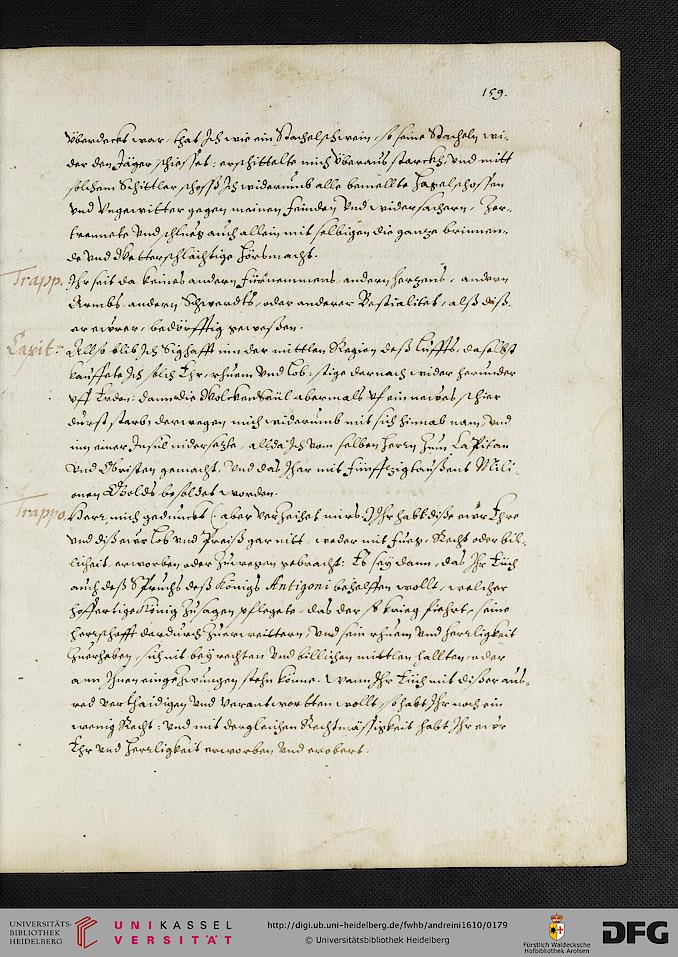 159.
Vberdeckt war, that Ich wie ein Stachelschwein, so seine Stacheln wi-
der den Jäger schiesset: erschittelte mich Vberaus starckh, Vnd mitt
solchem Schittler schoss Ich widerumb alle bemellte Hagelschossen
Vnd Vngewitter gegen meinen feinden Vnd widersachern, Zer-
trennete Vnd schlueg auch allein mit selbigen die gantze brinnen-
de Vnd Wetterschlächtige Hörsmacht.
Trapp. Ihr seit da keines andern fürnemmens, andern hertzens, andern
Armbs, andern Schwerdts, oder anderer Bestialitet, alß diß-
er ewrer, bedörfftig geweßen.
Capit: Allso blib Ich Sighafft inn der mittlen Region deß Luffts, daselbst
kauffete Ich solch Ehr, rhuem Vnd Lob, stige darnach wider herunder
vff Erden: dann die Wolckenseül abermals vf ein newes schier
durst starb, derwegen mich widerumb mit sich hinab nam, Vnd
inn einer Insul nidersetzte, allda Ich vom selben Herrn Zum Capitan
Vnd Obristen gemacht, Vnd das Jhar mit fünffzigtaußent Mili-
onen Golds besoldet worden.
Trappo. Herr, mich geduncks (: aber Verzeihet mirs :) Ihr habt diße ewr Ehre
Vnd diß ewr Lob Vnd Preiß gar nitt, weder mit fueg, Recht oder bil-
licheit, erworben oder Zuwegen gebracht: Es sey dann, das Ihr Eüch
auch deß Spruchs deß Königs Antigoni behelffen wollt, welcher
hoffertige König Zusagen pflegete, das der so krieg fiehrt, seine
herrschafft dardurch Zuerweittern, Vnd sein rhuem Vnd herrligkeit
Zuerheben, sich mit bey rechten Vnd billichen mittlen hallten, oder
ann Ihnen eingezwungen stehn könne. Wann Ihr Eüch mit dißer aus-
red verthaidigen Vnd verantwortten wollt, so habt Ihr noch ein
wenig Recht: Vnd mit dergleichen Rechtmässigkeit habt Ihr ewr
Ehr Vnd herrligkeit erworben Vnd erobert.
UNIVERSITÄTS-
BIBLIOTHEK
HEIDELBERG
UNIKASSEL
VERSITÄT
http://digi.ub.uni-heidelberg.de/fwhb/andreini1610/0179
© Universitätsbibliothek Heidelberg
Fürstlich Waldecksche
Hofbibliothek Arolsen
DFG